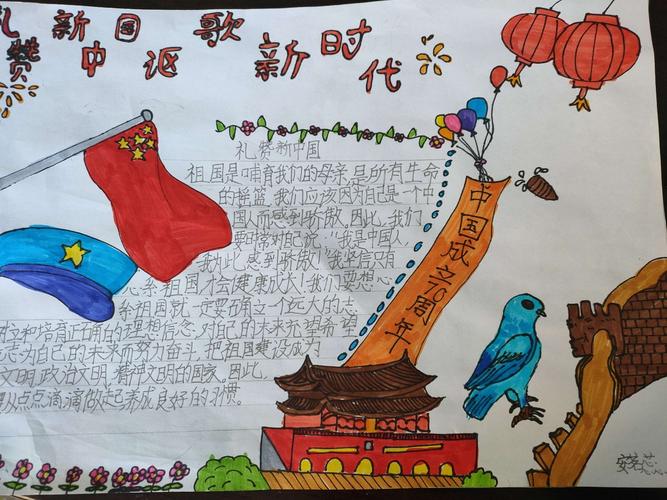 礼赞新中国 讴歌新时代
礼赞新中国
祖国是哺育我们的母亲,是所有生命
的摇篮,我们应该因为自己是一个中
国人而感到骄傲。因此,我们
要时常对自己说:"我是中国人,
我为此感到骄傲!我坚信只有
心系祖国,才会健康成长!我们要想心
系祖国就一定要在确立一个远大的志
和培育正确的的理想信念,对自己的未来充望希望
志,为自己的未来而努力奋斗,把祖国建设成为
文明,政治文明,精神文明的国家。因此,
从点点滴滴做起养成良好的习惯。
中国成立70周年